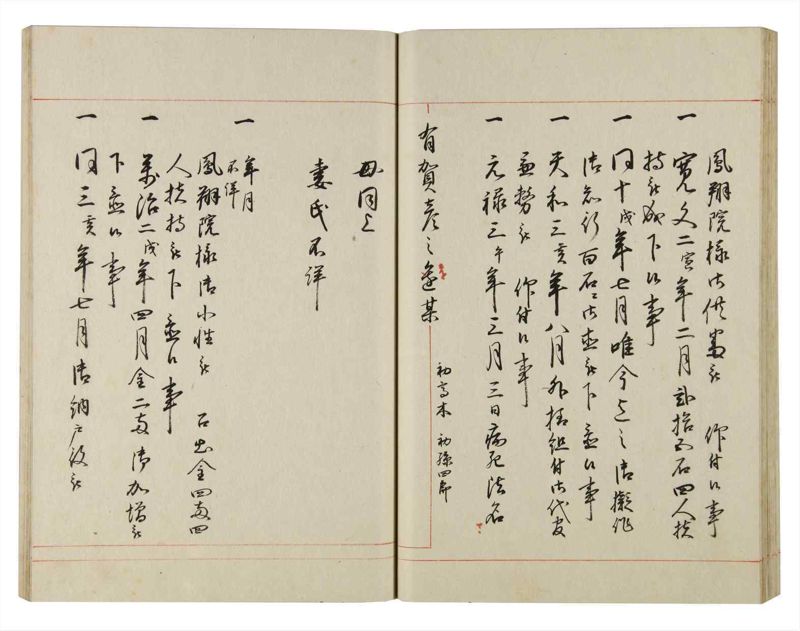 鳳翔院様御供番被 仰付候事
一 寛文二寅年二月 石四人扶
持被成下候事
一 同十戌年七月唯今迄之御擬作
御知行百石ニ御直被下置候事
一 天和三亥年八月外様組付御代官
兼勤被 仰付候事
一 元禄三午年三月三日病死法名
有賀彦之進某 初高木 初孫四郎
母同上
妻氏不詳
一 年月不詳
鳳翔院様御小性被 召出金四両四
人扶持被下置候事
一 萬治二 年四月金二両御加増被
下置候事
一 同三 年七月御納戸役被